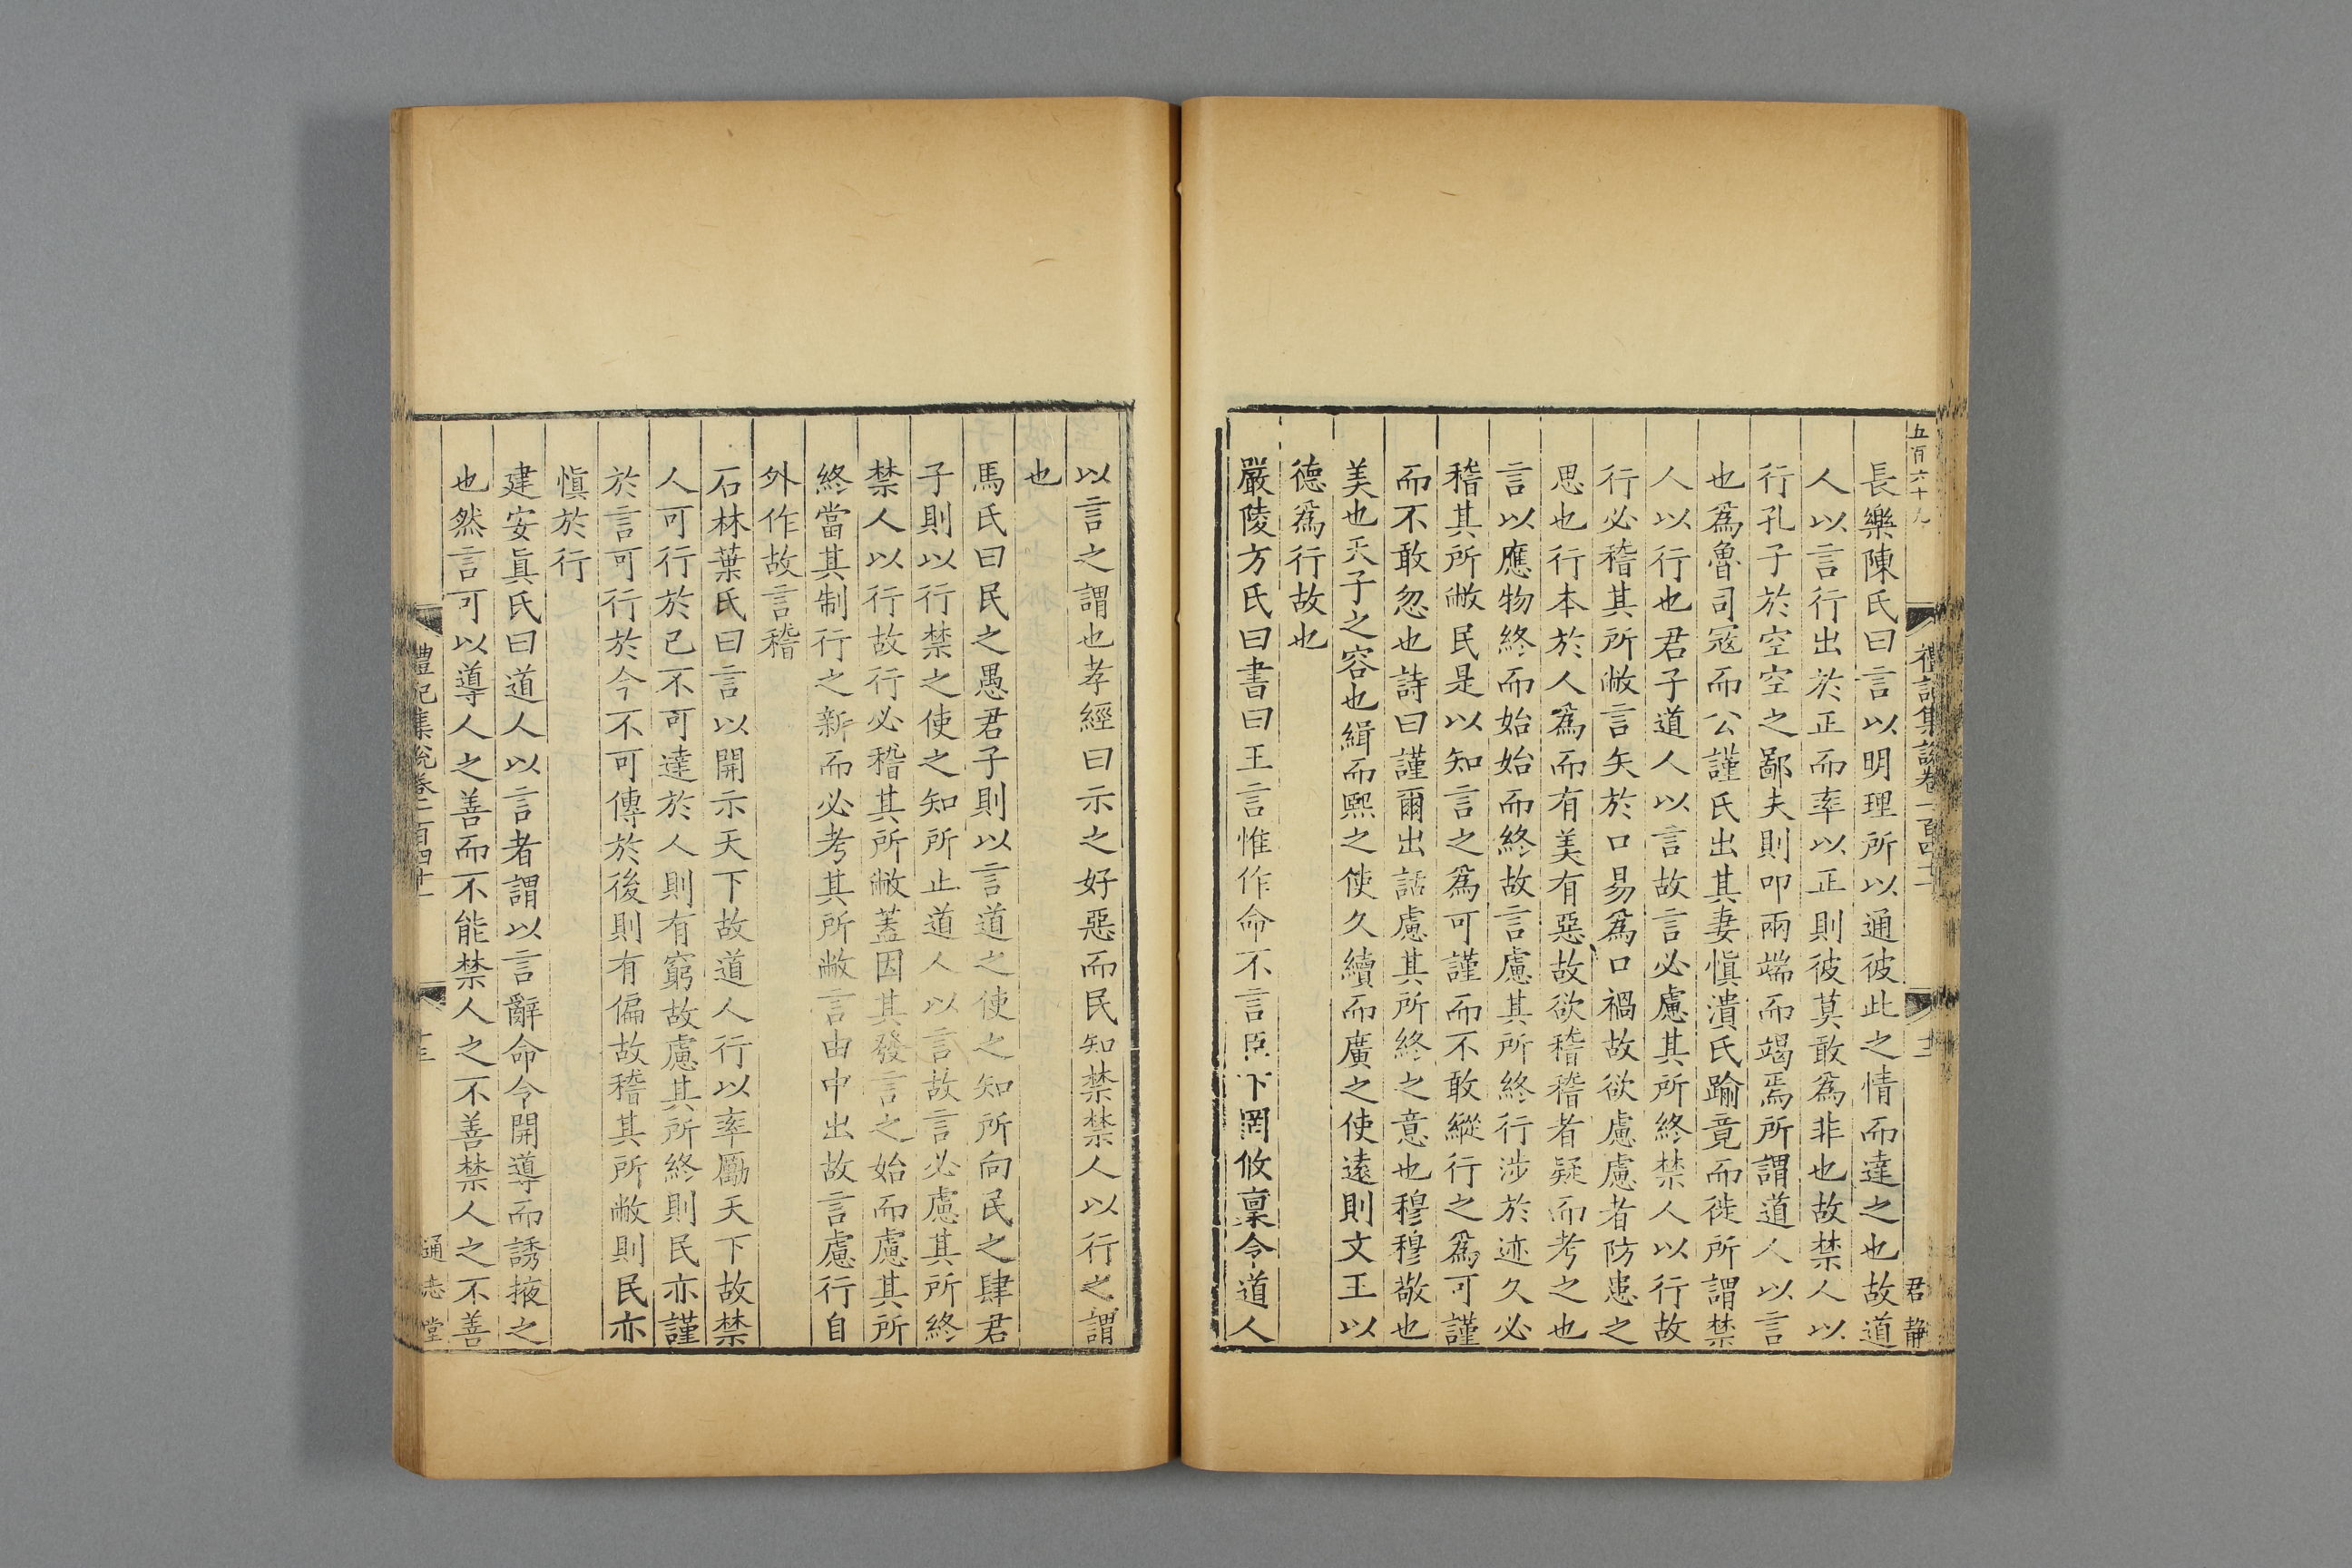 五百六十九
禮記集說卷一百四十一
君靜
長樂陳氏曰言以明理所以通彼此之情而達之也故道
人以言行出於正而率以正則彼莫敢爲非也故禁人以
行孔子於空空之鄙夫則叩兩端而竭焉所謂道人以言
也爲魯司冦而公謹氏出其妻愼潰氏踰竟而徙所謂禁
人以行也君子道人以言故言必慮其所終禁人以行故
行必稽其所敝言矢於口易爲口禍故欲慮慮者防患之
思也行本於人爲而有美有惡故欲稽稽者疑而考之也
言以應物終而始始而終故言慮其所終行涉於迹久必
稽其所敝民是以知言之爲可謹而不敢縱行之爲可謹
而不敢忽也詩曰謹爾出話慮其所終之意也穆穆敬也
美也天子之容也緝而熙之使久續而廣之使遠則文王以
德爲行故也
嚴陵方氏曰書曰王言惟作命不言臣下罔攸稟令道人
以言之謂也孝經曰示之好惡而民知禁禁人以行之謂
也
馬氏曰民之愚君子則以言道之使之知所向民之肆君
子則以行禁之使之知所止道人以言故言必慮其所終
禁人以行故行必稽其所敝蓋因其發言之始而慮其所
終當其制行之新而必考其所敝言由中出故言慮行自
外作故言稽
石林葉氏曰言以開示天下故道人行以率勵天下故禁
人可行於己不可達於人則有窮故慮其所終則民亦謹
於言可行於今不可傳於後則有偏故稽其所敝則民亦
愼於行
建安眞氏曰道人以言者謂以言辭命令開導而誘掖之
也然言可以導人之善而不能禁人之不善禁人之不善
禮記集說卷一百四十一
通志堂